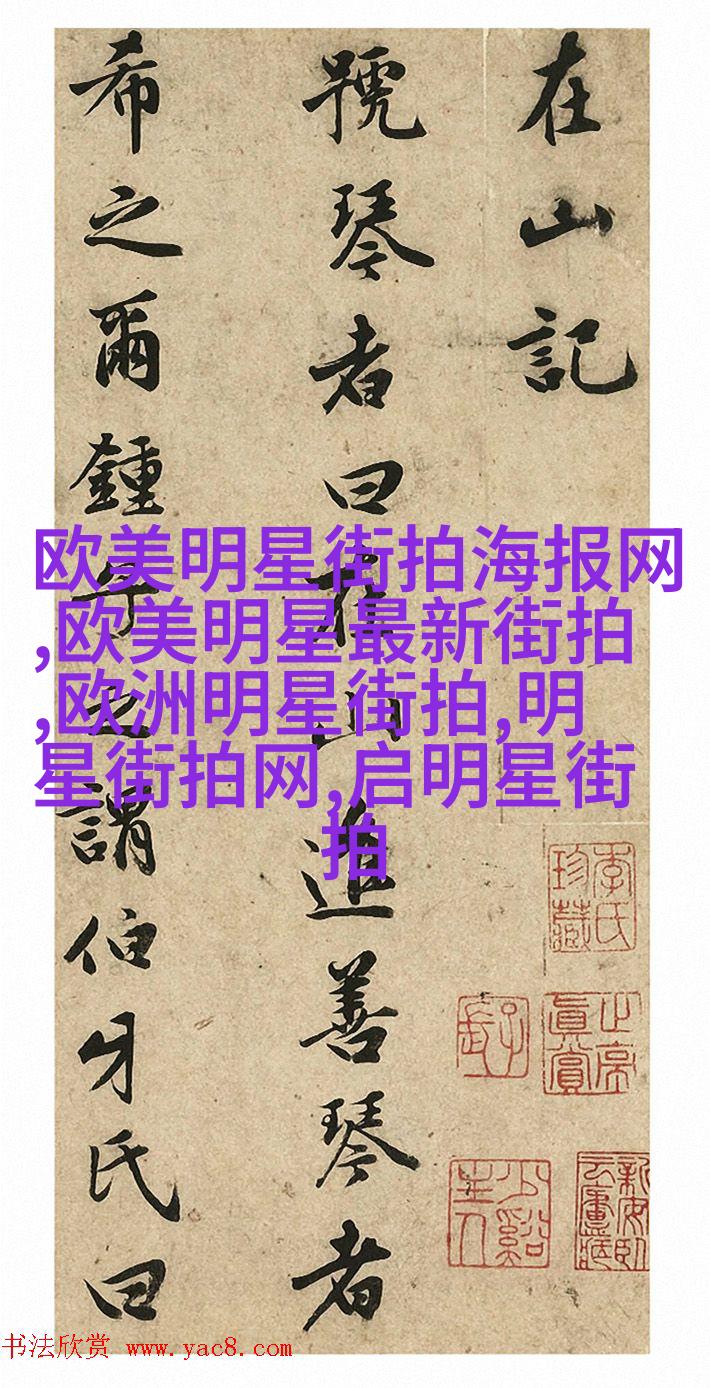 在山記
號琴者曰在山進善琴者
希之爾鍾子之謂伯牙氏曰
欧美明星街拍海报网
,欧美明星最新街拍
,欧洲明星街拍,明
星街拍网,启明星街
拍
季氏珍藏
真賞
少谿主人
书法欣赏 www.yac8.com